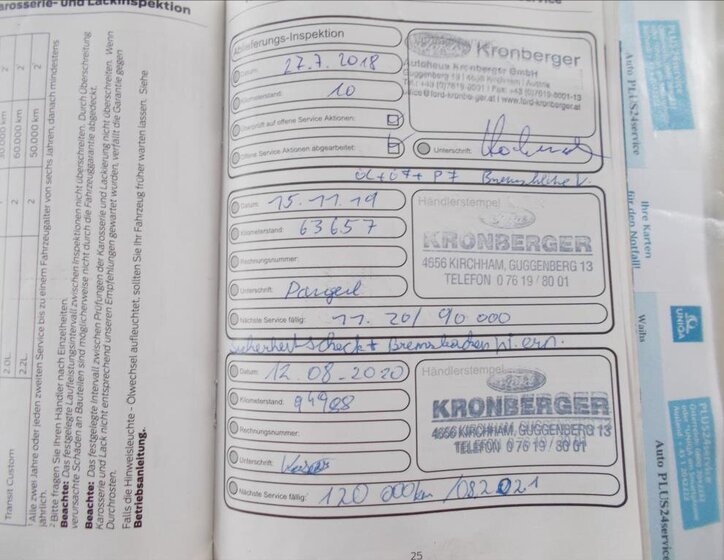 Karosserie- und Lackinspektion
2
2
2
60.000 km
50.000 km
2
2
2.0L
2.2L
Transit Custom
¹ Alle zwei Jahre oder jeden zweiten Service bis zu einem Fahrzeugalter von sechs Jahren, danach mindestens
jährlich.
² Bitte fragen Sie Ihren Händler nach Einzelheiten.
Beachte: Das festgelegte Laufleistungsintervall zwischen Inspektionen nicht überschreiten. Durch Überschreitung
verursachte Schäden an Bauteilen sind möglicherweise nicht durch die Fahrzeuggarantie abgedeckt.
Beachte: Das festgelegte Intervall zwischen Prüfungen der Karosserie und Lackierung nicht überschreiten. Wenn
Karosserie und Lack nicht entsprechend unseren Empfehlungen gewartet wurden, verfällt die Garantie gegen
Durchrosten.
Falls die Hinweisleuchte - Ölwechsel aufleuchtet, sollten Sie Ihr Fahrzeug früher warten lassen. Siehe
Betriebsanleitung.
Ablieferungs-Inspektion
Datum: 27.7.2018
Kilometerstand: 10
Überprüft auf offene Service Aktionen:
Offene Service Aktionen abgearbeitet:
Kronberger
Autohaus Kronberger GmbH
Guggenberg 13 | 4656 Kirchham | Austria
Unterschrift:
Datum: 15.11.19
Kilometerstand: 63657
Rechnungsnummer:
Unterschrift:
Nächste Service fällig: 11.20/90000
Händlerstempel
KRONBERGER
4656 KIRCHHAM, GUGGENBERG 13
TELEFON 0 76 19 / 80 01
Datum: 12.08-2020
Kilometerstand: 94968
Rechnungsnummer:
Unterschrift:
Nächste Service fällig: 120 000km /08.2021
Händlerstempel
KRONBERGER
4656 KIRCHHAM, GUGGENBERG 13
TELEFON 0 76 19 / 80 01
25
PLUS24service
Auto PLUS24service
Ihre Karten
für den Notfall!
UNIQA
Waibs
PLUS24service
Auto PLUS24service